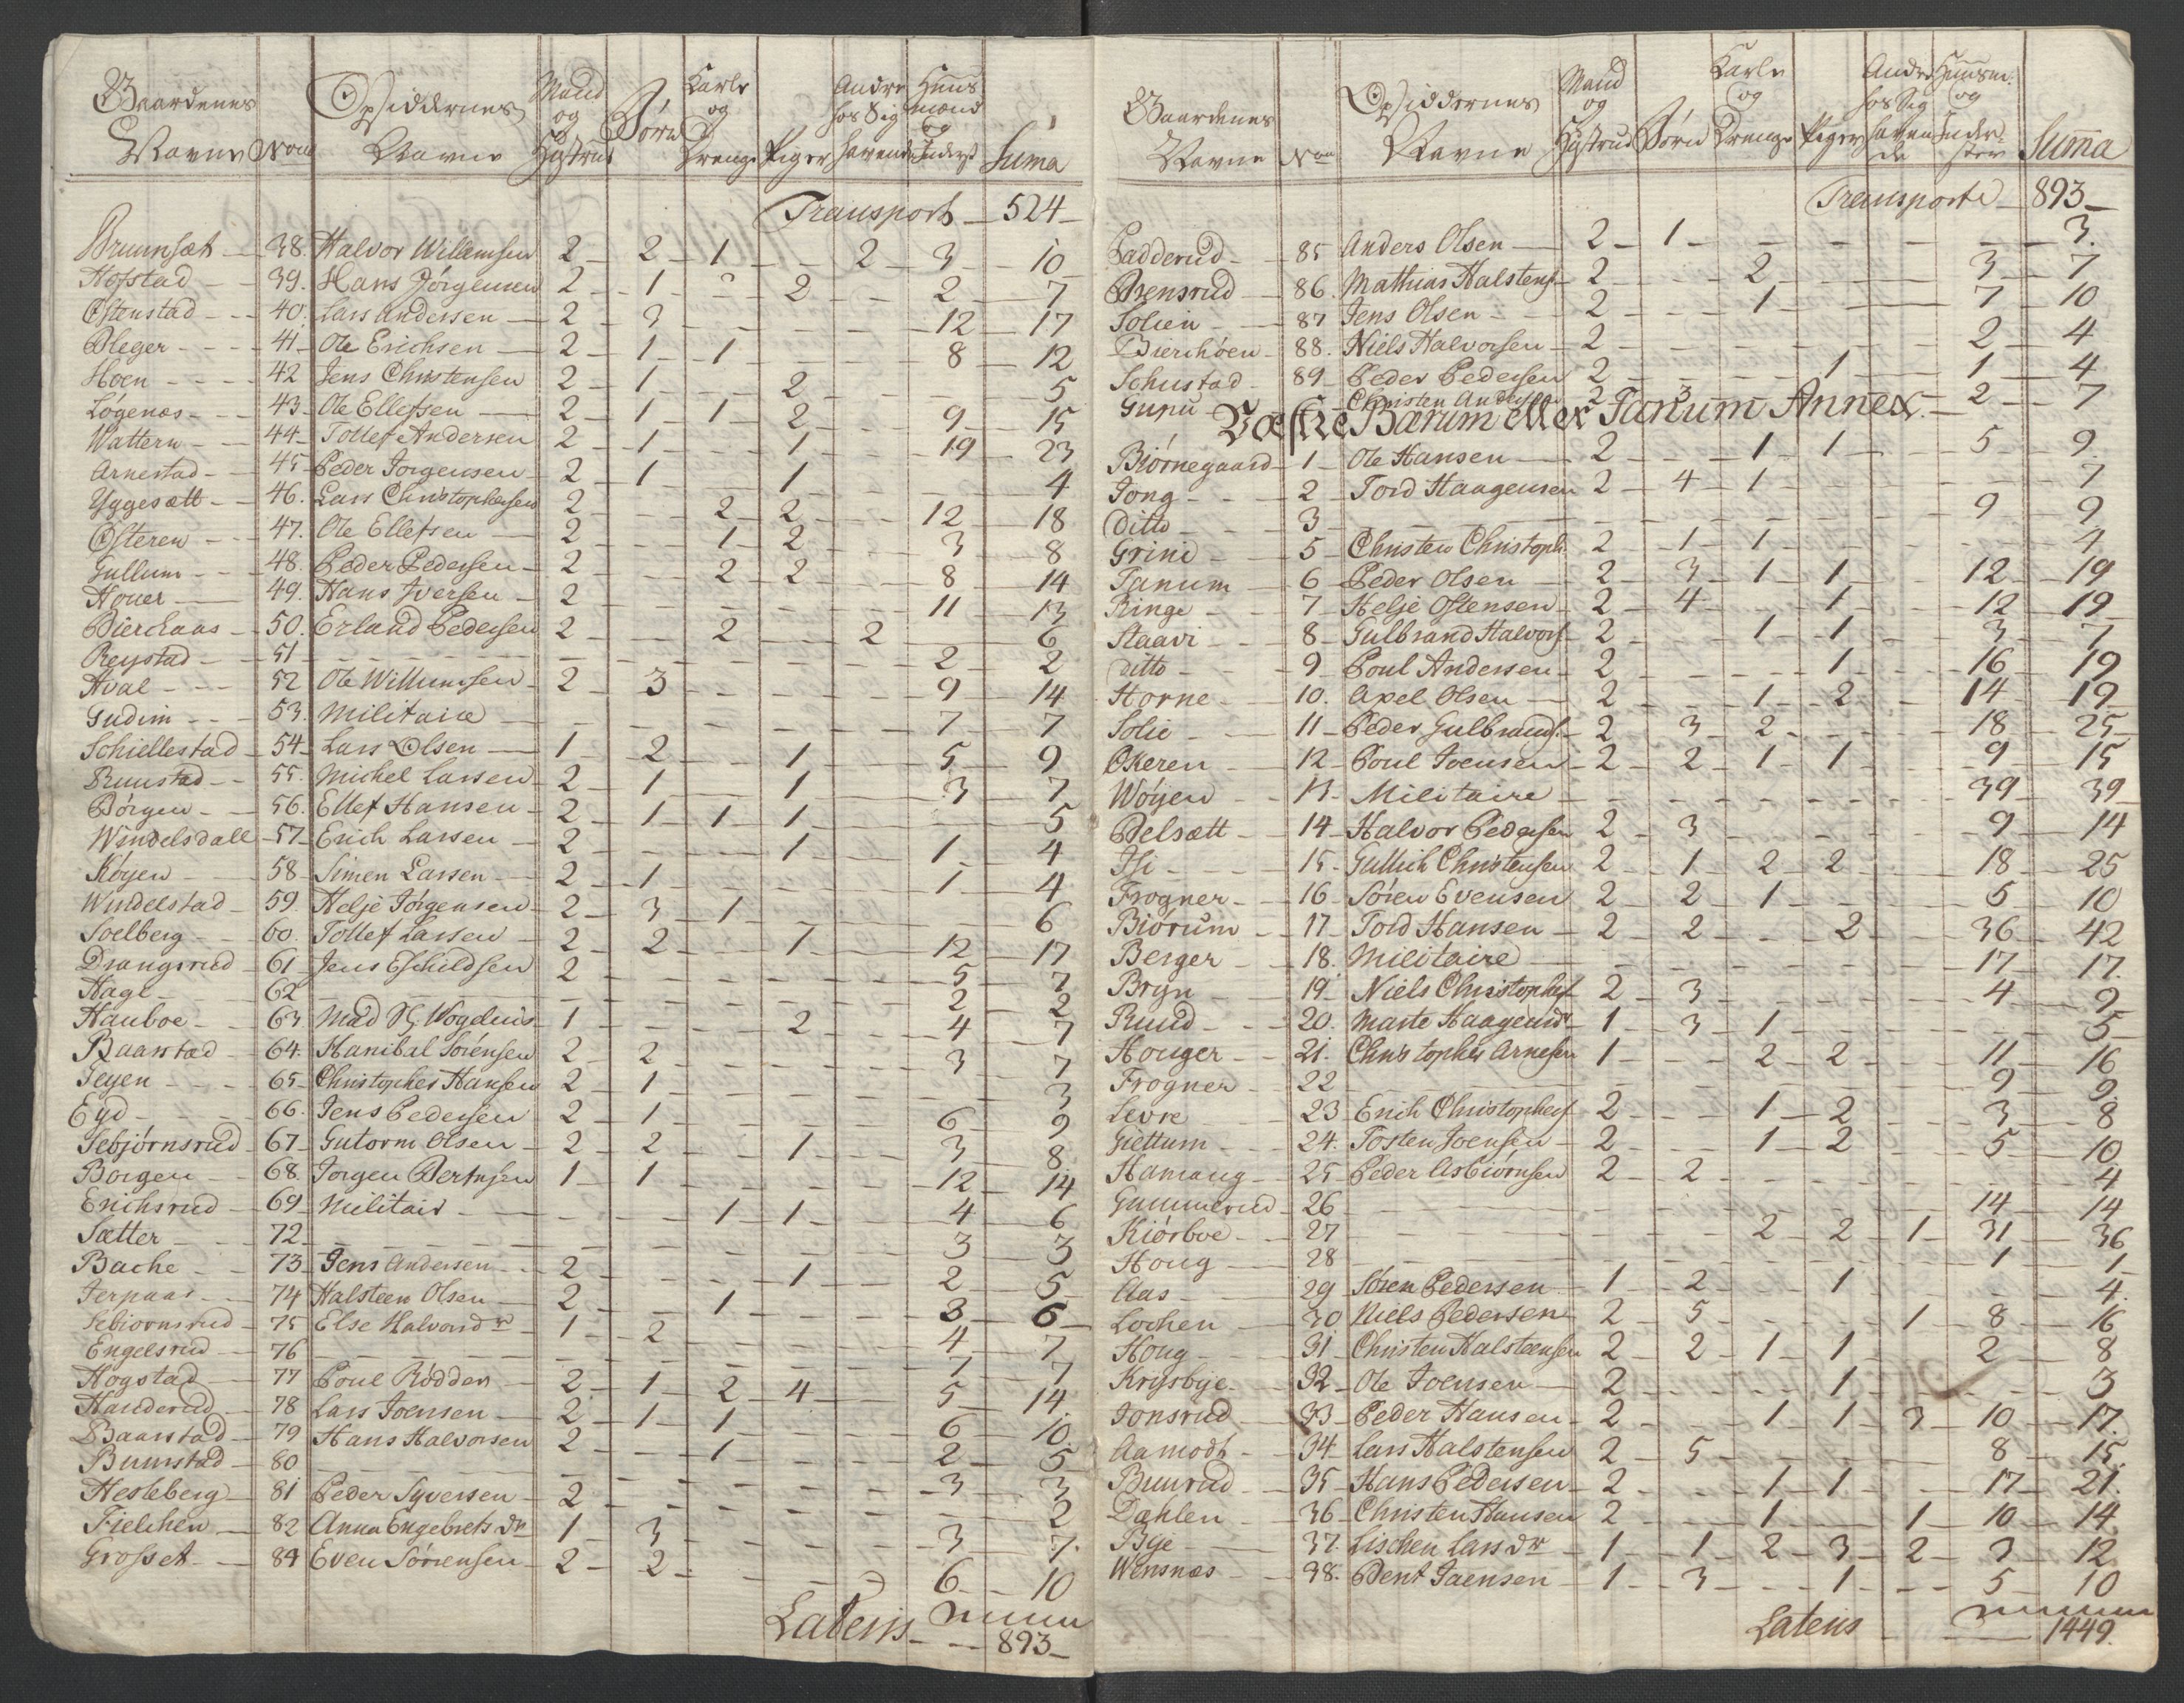 Gaardenes Navne Nom Opsiddernes Navne Mand og Hustrue Børn Karle og Drenge Piger Andre hos Sig havende Huusmænd og Inderst Suma
Transport 524
Bruunsæt 38. Halvor Willumsen 2 2 1 2 3 10
Hofstad 39. Hans Jørgensen 2 1 2 2 7
Østenstad 40. Lars Andersen 2 3 12 17
Bleger 41 Ole Erichsen 2 1 1 8 12
Hoen 42 Jens Christensen 2 1 2 5
Løgenæs 43 Ole Ellefsen 2 1 1 2 9 15
Wattern 44 Tollef Andersen 2 1 1 19 23
Arnestad 45 Peder Jørgensen 2 1 1 4
Yggesætt 46. Lars Christophersen 2 2 2 12 18
Østeren 47. Ole Ellefsen 2 1 2 3 8
Gullum 48. Peder Pedersen 2 2 2 8 14
Houer 49. Hans Iversen 2 11 13
Bierchaas 50. Erland Pedersen 2 2 2 6
Reystad 51 2 2
Aval 52 Ole Willumsen 2 3 9 14
Gudim 53. Militaire 7 7
Schiellestad 54 Lars Olsen 1 2 1 5 9
Bruustad 55. Michel Larsen 2 1 1 3 7
Børgen 56. Ellef Hansen 2 1 1 1 5
Windelsdall 57 Erich Larsen 2 1 1 4
Køyen 58 Simen Larsen 2 1 1 4
Windelstad 59. Helje Jørgensen 2 3 1 6
Soelberg 60. Tollef Larsen 2 2 1 12 17
Drangsrud 61 Jens Eschildsen 2 5 7
Hage 62 2 2
Hauboe 63 Mad Wogelius 1 2 4 7
Baarstad 64. Hanibal Sørensen 2 2 3 7
Teyen 65 Christopher Hansen 2 1 3
Eyd 66. Jens Pedersen 2 1 6 9
Sebjørnsrud 67 Gutorm Olsen 2 2 1 3 8
Borgen 68. Jørgen Berntsen 1 1 12 14
Erichsrud 69 Militair 1 1 4 6
Sætter 72 3 3
Bache 73 Jens Andersen 2 1 2 5
Jerpaas 74 Halsteen Olsen 2 1 3 6
Sebiornsrud 75 Else Halvorsdr 1 2 4 7
Engelsrud 76 7 7
Hogstad 77 Poul Rødder 2 1 2 4 5 14.
Handerud 78 Lars Joensen 2 1 1 6 10
Baarstad 79 Hans Halvorsen 2 1 2 5
Buustad 80 3 3
Hesleberg 81 Peder Syversen 2 2
Fielchen 82 Anna Engebrets dr 1 3 3 7.
Grosset 84 Even Sørensen 2 2 6 10
Lateris 893
Gaardenes Navne Nom Opsiddernes Navne Mand og Hustrue Børn Karle og Drenge Piger Andre hos Sig havende Huusm. og Inderster Suma
Transporte 893
Padderud 85 Anders Olsen 2 1 3.
Brensrud 86. Mathias Halstens. 2 2 3 7
Solien 87 Jens Olsen 2 1 7 10
Bierchøen 88. Niels Halvorsen 2 2 4
Schustad 89 Peder Pedersen 2 1 1 4
Gupu Christen Andersen 2 3 2 7
Væstre Bærum eller Tanum Annex.
Biørnegaard 1 Ole Hansen 2 1 1 5 9
Jong 2 Tord Haagensen 2 4 1 7
Ditto 3 9 9
Grini 5 Christen Christoph. 2 1 1 4
Tanum 6 Peder Olsen 2 3 1 1 12 19
Ringi 7 Helje Ostensen 2 4 1 12 19
Staavi 8 Gulbrand Halvors. 2 1 1 3 7
Ditto 9 Poul Andersen 2 1 16 19
Horne 10. Axel Olsen 2 1 2 14 19
Solie 11 Peder Gulbrands. 2 3 2 18 25
Økeren 12 Poul Joensen 2 2 1 1 9 15
Wøyen 13 Militaire 39 39
Belsætt 14 Halvor Pedersen 2 3 9 14
Isi 15. Gullich Christensen 2 1 2 2 18 25
Frogner 16 Søren Evensen 2 2 1 5 10
Biørum 17 Tord Hansen 2 2 2 36 42
Berger 18. Militaire 17 17.
Bryn 19 Niels Christophers. 2 3 4 9
Ruud 20. Marte Haagensdr 1 3 1 5
Houger 21. Christopher Arnesen 1 2 2 11 16
Frogner 22 9 9.
Levre 23 Erich Christophers. 2 1 2 3 8
Giettum 24. Tosten Joensen 2 1 2 5 10
Hamang 25 Peder Asbiørnsen 2 2 4
Gummerud 26 14 14
Kiørboe 27 2 2 1 31 36
Houg 28 1 1
Aas 29 Søren Pedersen 1 2 1 4.
Lochen 30 Niels Pedersen 2 5 1 8 16
Houg 31 Christen Halsteensen 2 2 1 1 2 8
Krysbye 32 Ole Joensen 2 1 3
Jonsrud 33 Peder Hansen 2 1 1 3 10 17.
Aamodt 34 Lars Halstensen 2 5 8 15.
Buurud 35 Hans Pedersen 2 1 1 17 21.
Dæhlen 36 Christen Hansen 2 1 1 10 14.
Bye 37. Lischen Lars dr 1 1 2 3 2 3 12
Wensnæs 38. Bent Jaensen 1 3 1 5 10
Lateris 1449.